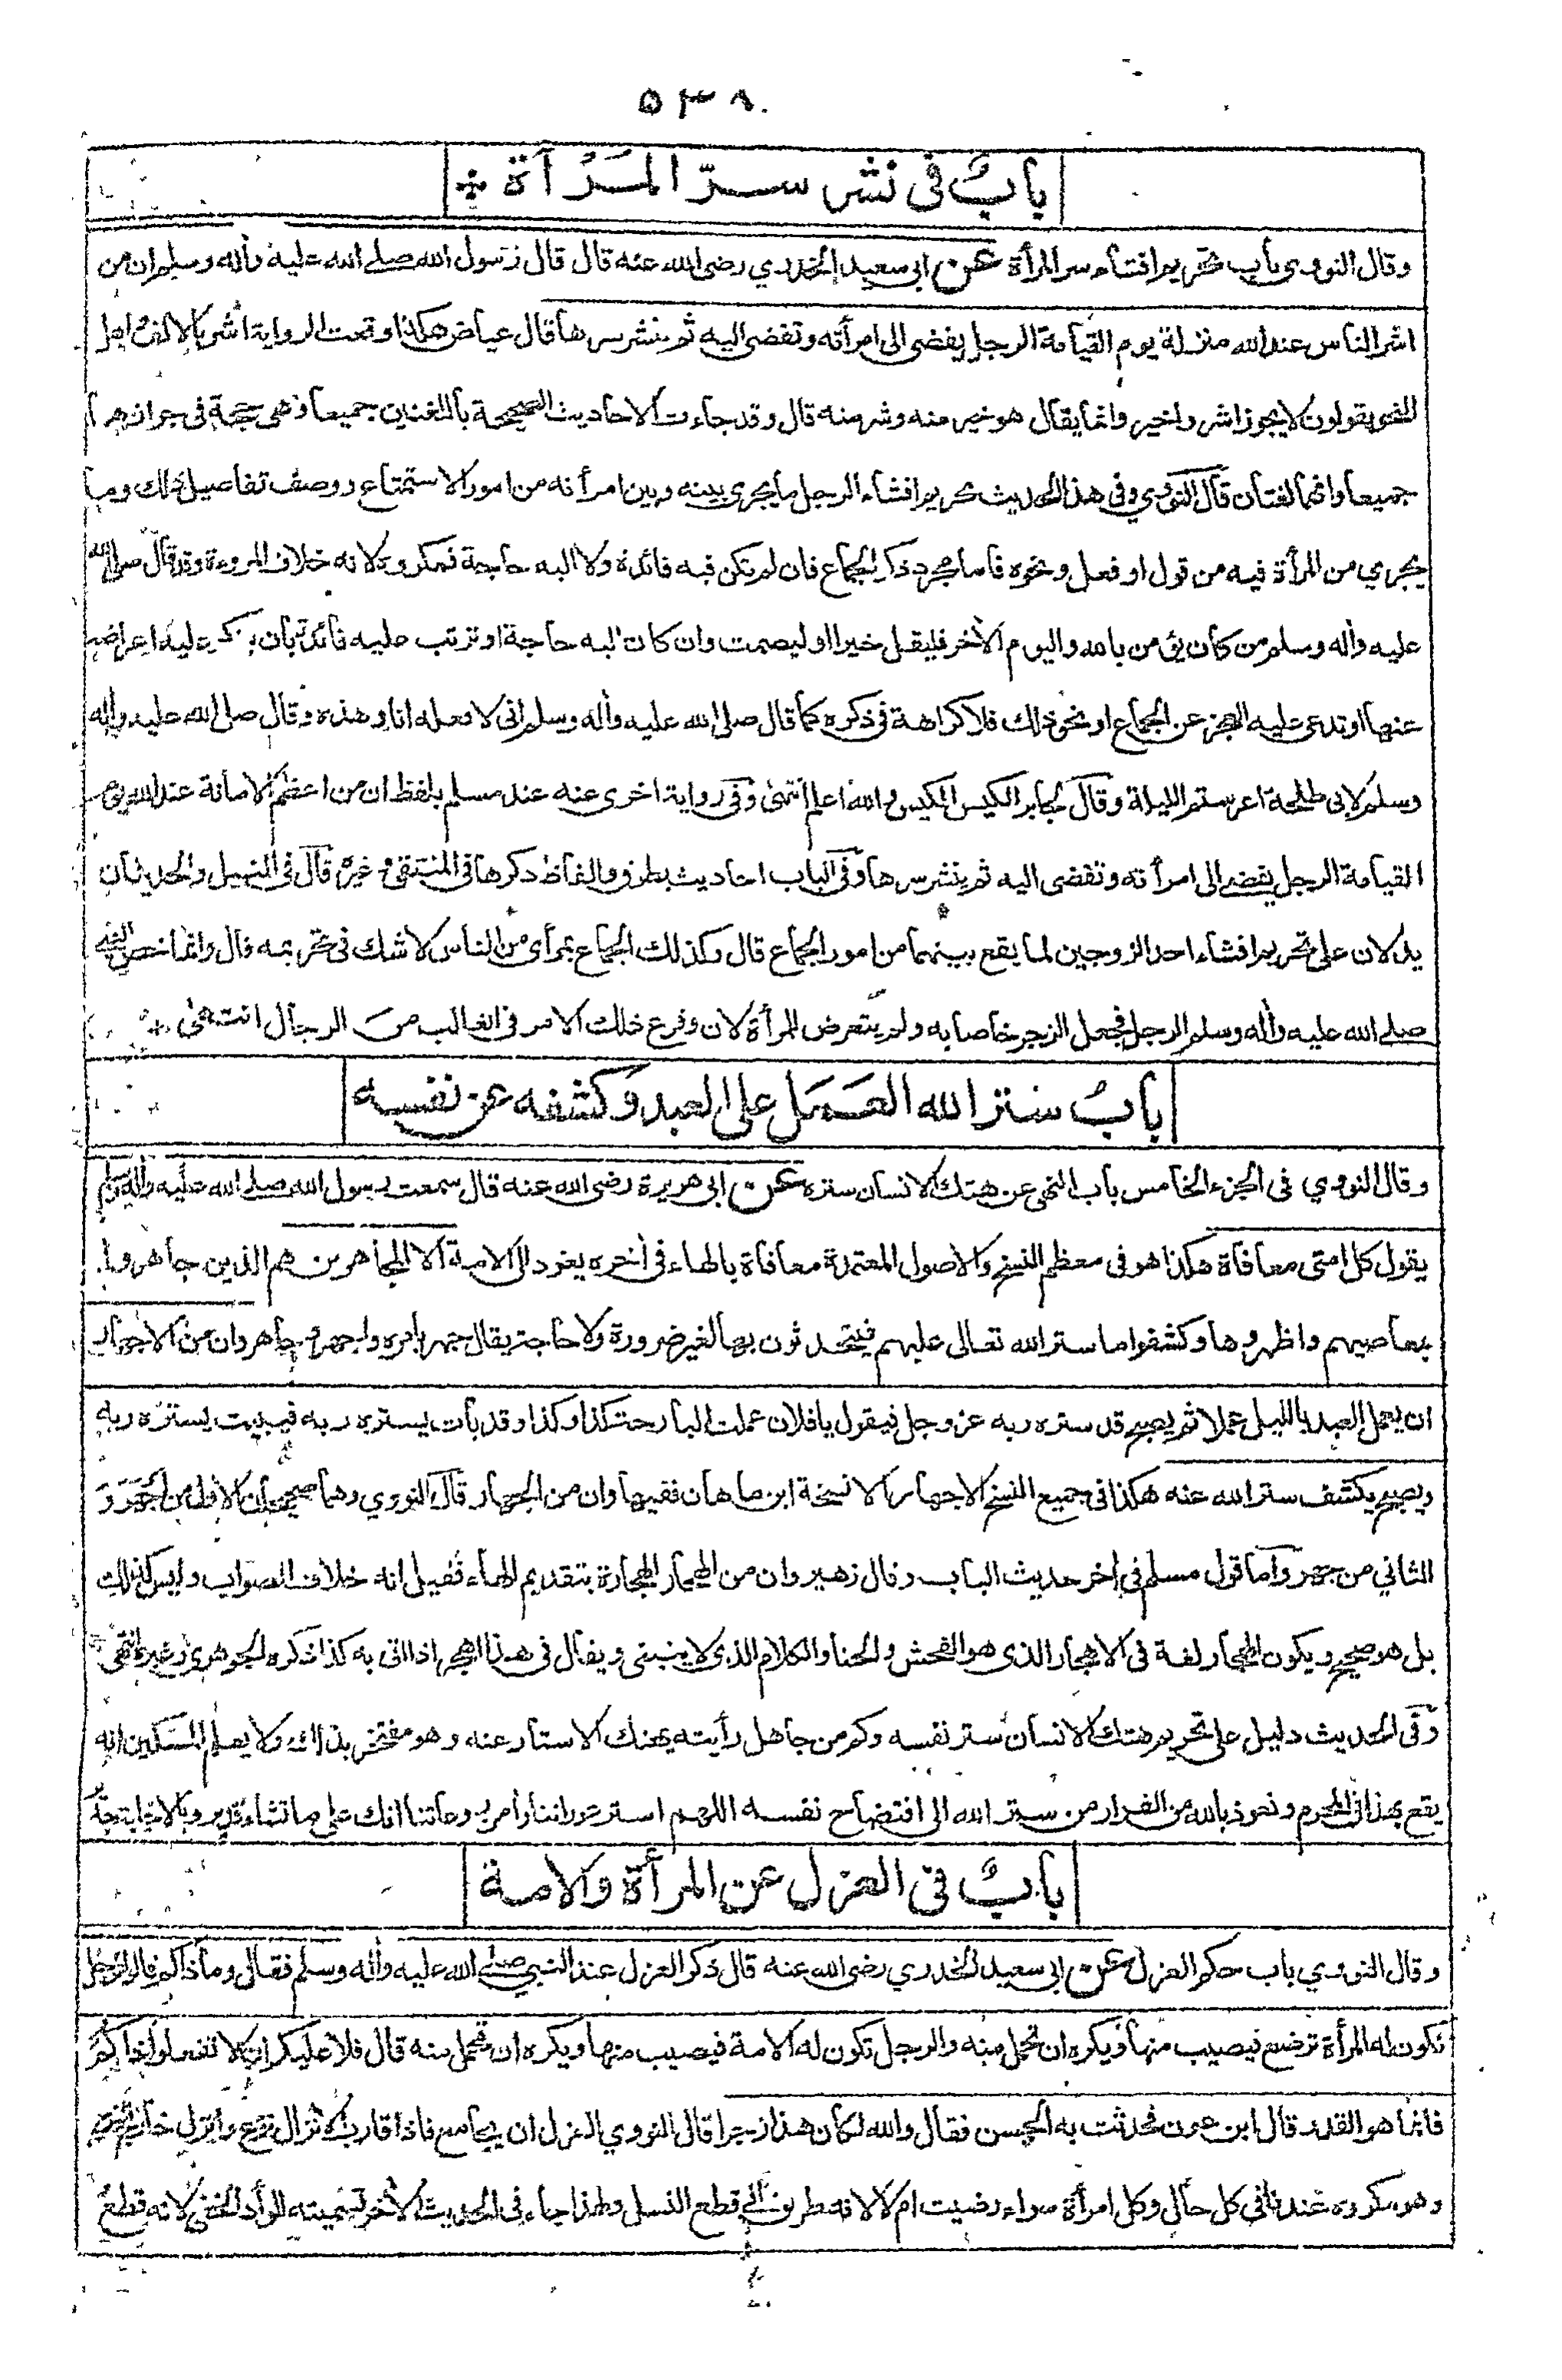 ٥٣٨
باب في نشر سرّ المرأة
وقال النووي باب تحريم افشاء سر المرأة عن ابي سعيد الخدري رضي الله عنه قال قال رسول الله صلى الله عليه وأله وسلم ان من
اشر الناس عند الله منزلة يوم القيامة الرجل يفضى الى امرأته وتفضى اليه ثم ينشر سرها قال عياض هكذا وقعت الرواية اشر بالالف واهل
النحو يقولون لا يجوز اشر واخير وانما يقال هو خير منه وشر منه قال وقد جاءت الاحاديث الصحيحة باللغتين جميعا وهى حجة في جوازهما
جميعا وانهما لغتان قال النووي وفى هذا الحديث تحريم افشاء الرجل ما يجرى بينه وبين امرأته من امور الاستمتاع ووصف تفاصيل ذلك وما
يجري من المرأة فيه من قول او فعل ونحوه فأما مجرد ذكر الجماع فان لم تكن فيه فائدة ولا اليه حاجة فمكروه لانه خلاف المروءة وقد قال صلى الله
عليه وأله وسلم من كان يؤمن بالله واليوم الأخر فليقل خيرا او ليصمت وان كان اليه حاجة او ترتب عليه فائدة بان ينكر عليه اعراضه
عنها او تدعى عليه العجز عن الجماع او نحو ذلك فلا كراهة في ذكره كما قال صلى الله عليه وأله وسلم انى لافعله انا وهذه وقال صلى الله عليه وأله
وسلم لابى طلحة اعرستم الليلة وقال لجابر الكيس الكيس والله اعلم انتهى وفى رواية اخرى عنه عند مسلم بلفظ ان من اعظم الامانة عند الله يوم
القيامة الرجل يفضى الى امرأته وتفضى اليه ثم ينشر سرها وفى الباب احاديث بطرق والفاظ ذكرها في المنتقى وغيره قال في النيل والحديثان
يدلان على تحريم افشاء احد الزوجين لما يقع بينهما من امور الجماع قال وكذلك الجماع بمرأى من الناس لا شك في تحريمه قال وانما خص النبي
صلى الله عليه وأله وسلم الرجل فجعل الزجر خاصا به ولم يتعرض للمرأة لان وقوع ذلك الامر في الغالب من الرجال انتهى
باب ستر الله العمل على العبد وكشفه عن نفسه
وقال النووي في الجزء الخامس باب النهى عن هتك الانسان ستره عن ابى هريرة رضى الله عنه قال سمعت رسول الله صلى الله عليه وأله وسلم
يقول كل امتى معافاة هكذا هو فى معظم النسخ والاصول المعتمدة معافاة بالهاء في أخره يعود الى الامة الا المجاهرين هم الذين جاهروا
بمعاصيهم واظهروها وكشفوا ما ستر الله تعالى عليهم فيتحدثون بها لغير ضرورة ولا حاجة يقال جهر بامره واجهر وجاهر وان من الاجهار
ان يعمل العبد بالليل عملا ثم يصبح قد ستره ربه عز وجل فيقول يا فلان عملت البارحة كذا وكذا وقد بات يستره ربه فيبيت يستره ربه
ويصبح يكشف ستر الله عنه هكذا في جميع النسخ الاجهار الا نسخة ابن ماهان ففيها وان من الجهار قال النووي وهما صحيحان الاول من اجهر و
الثاني من جهر واما قول مسلم في أخر حديث الباب وقال زهير وان من الهجار الهجارة بتقديم الهاء فقيل انه خلاف الصواب وليس كذلك
بل هو صحيح ويكون الهجار لغة فى الاهجار الذى هو الفحش والخنا والكلام الذى لا ينبغى ويقال في هذا اهجر اذا اتى به كذا ذكره الجوهرى وغيره انتهى
وفى الحديث دليل على تحريم هتك الانسان ستر نفسه وكم من جاهل رأيته يهتك الاستار عنه وهو مفتخر بذلك ولا يعلم المسكين انه
يقع بهذا في المحرم ونعوذ بالله من الفرار من ستر الله الى افتضاح نفسه اللهم استر عوراتنا وأمن روعاتنا انك على ما تشاء قدير وبالاجابة جدير
باب في العزل عن المرأة والامة
وقال النووي باب حكم العزل عن ابى سعيد الخدري رضى الله عنه قال ذكر العزل عند النبي صلى الله عليه وأله وسلم فقال وما ذاكم قالوا الرجل
تكون له المرأة ترضع فيصيب منها ويكره ان تحمل منه والرجل تكون له الامة فيصيب منها ويكره ان تحمل منه قال فلا عليكم ان لا تفعلوا ذاكم
فانما هو القدر قال ابن عون فحدثت به الحسن فقال والله لكأن هذا زجر قال النووي العزل ان يجامع فاذا قارب الانزال نزع وانزل خارج الفرج
وهو مكروه عندنا في كل حال وكل امرأة سواء رضيت ام لا لانه طريق الى قطع النسل ولهذا جاء في الحديث الأخر تسميته الوأد الخفى لانه قطع